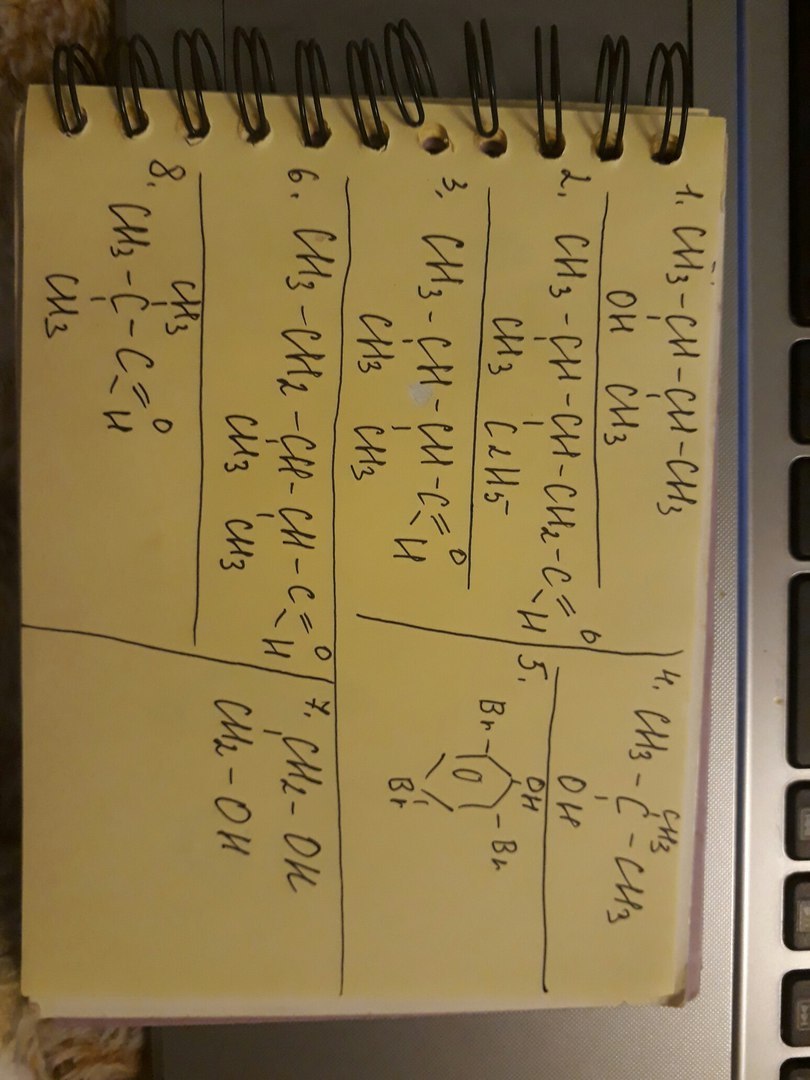 1. CH3-CH-CH-CH3
OH CH3
2. CH3-CH-CH-CH2-C=O
CH3 C2H5 H
3. CH3-CH-CH-C=O
CH3 CH3 H
CH3
4. CH3-C-CH3
OH
5. OH
Br Br
Br
6. CH3-CH2-CH-CH-C=O
CH3 CH3 H
7. CH2-OH
CH2-OH
CH3
8. CH3-C-C=O
CH3 H